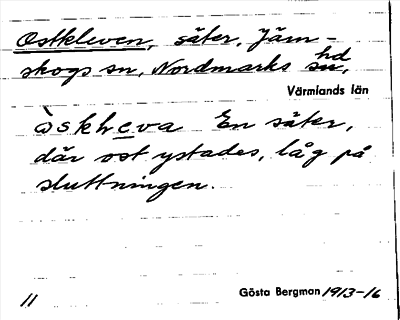 Ostkleven, säter, Järn-
skogs sn, Nordmarks hd,
Värmlands län
òskleva En säter,
där ost ystades, låg på
sluttningen.
Gösta Bergman 1913-16
11